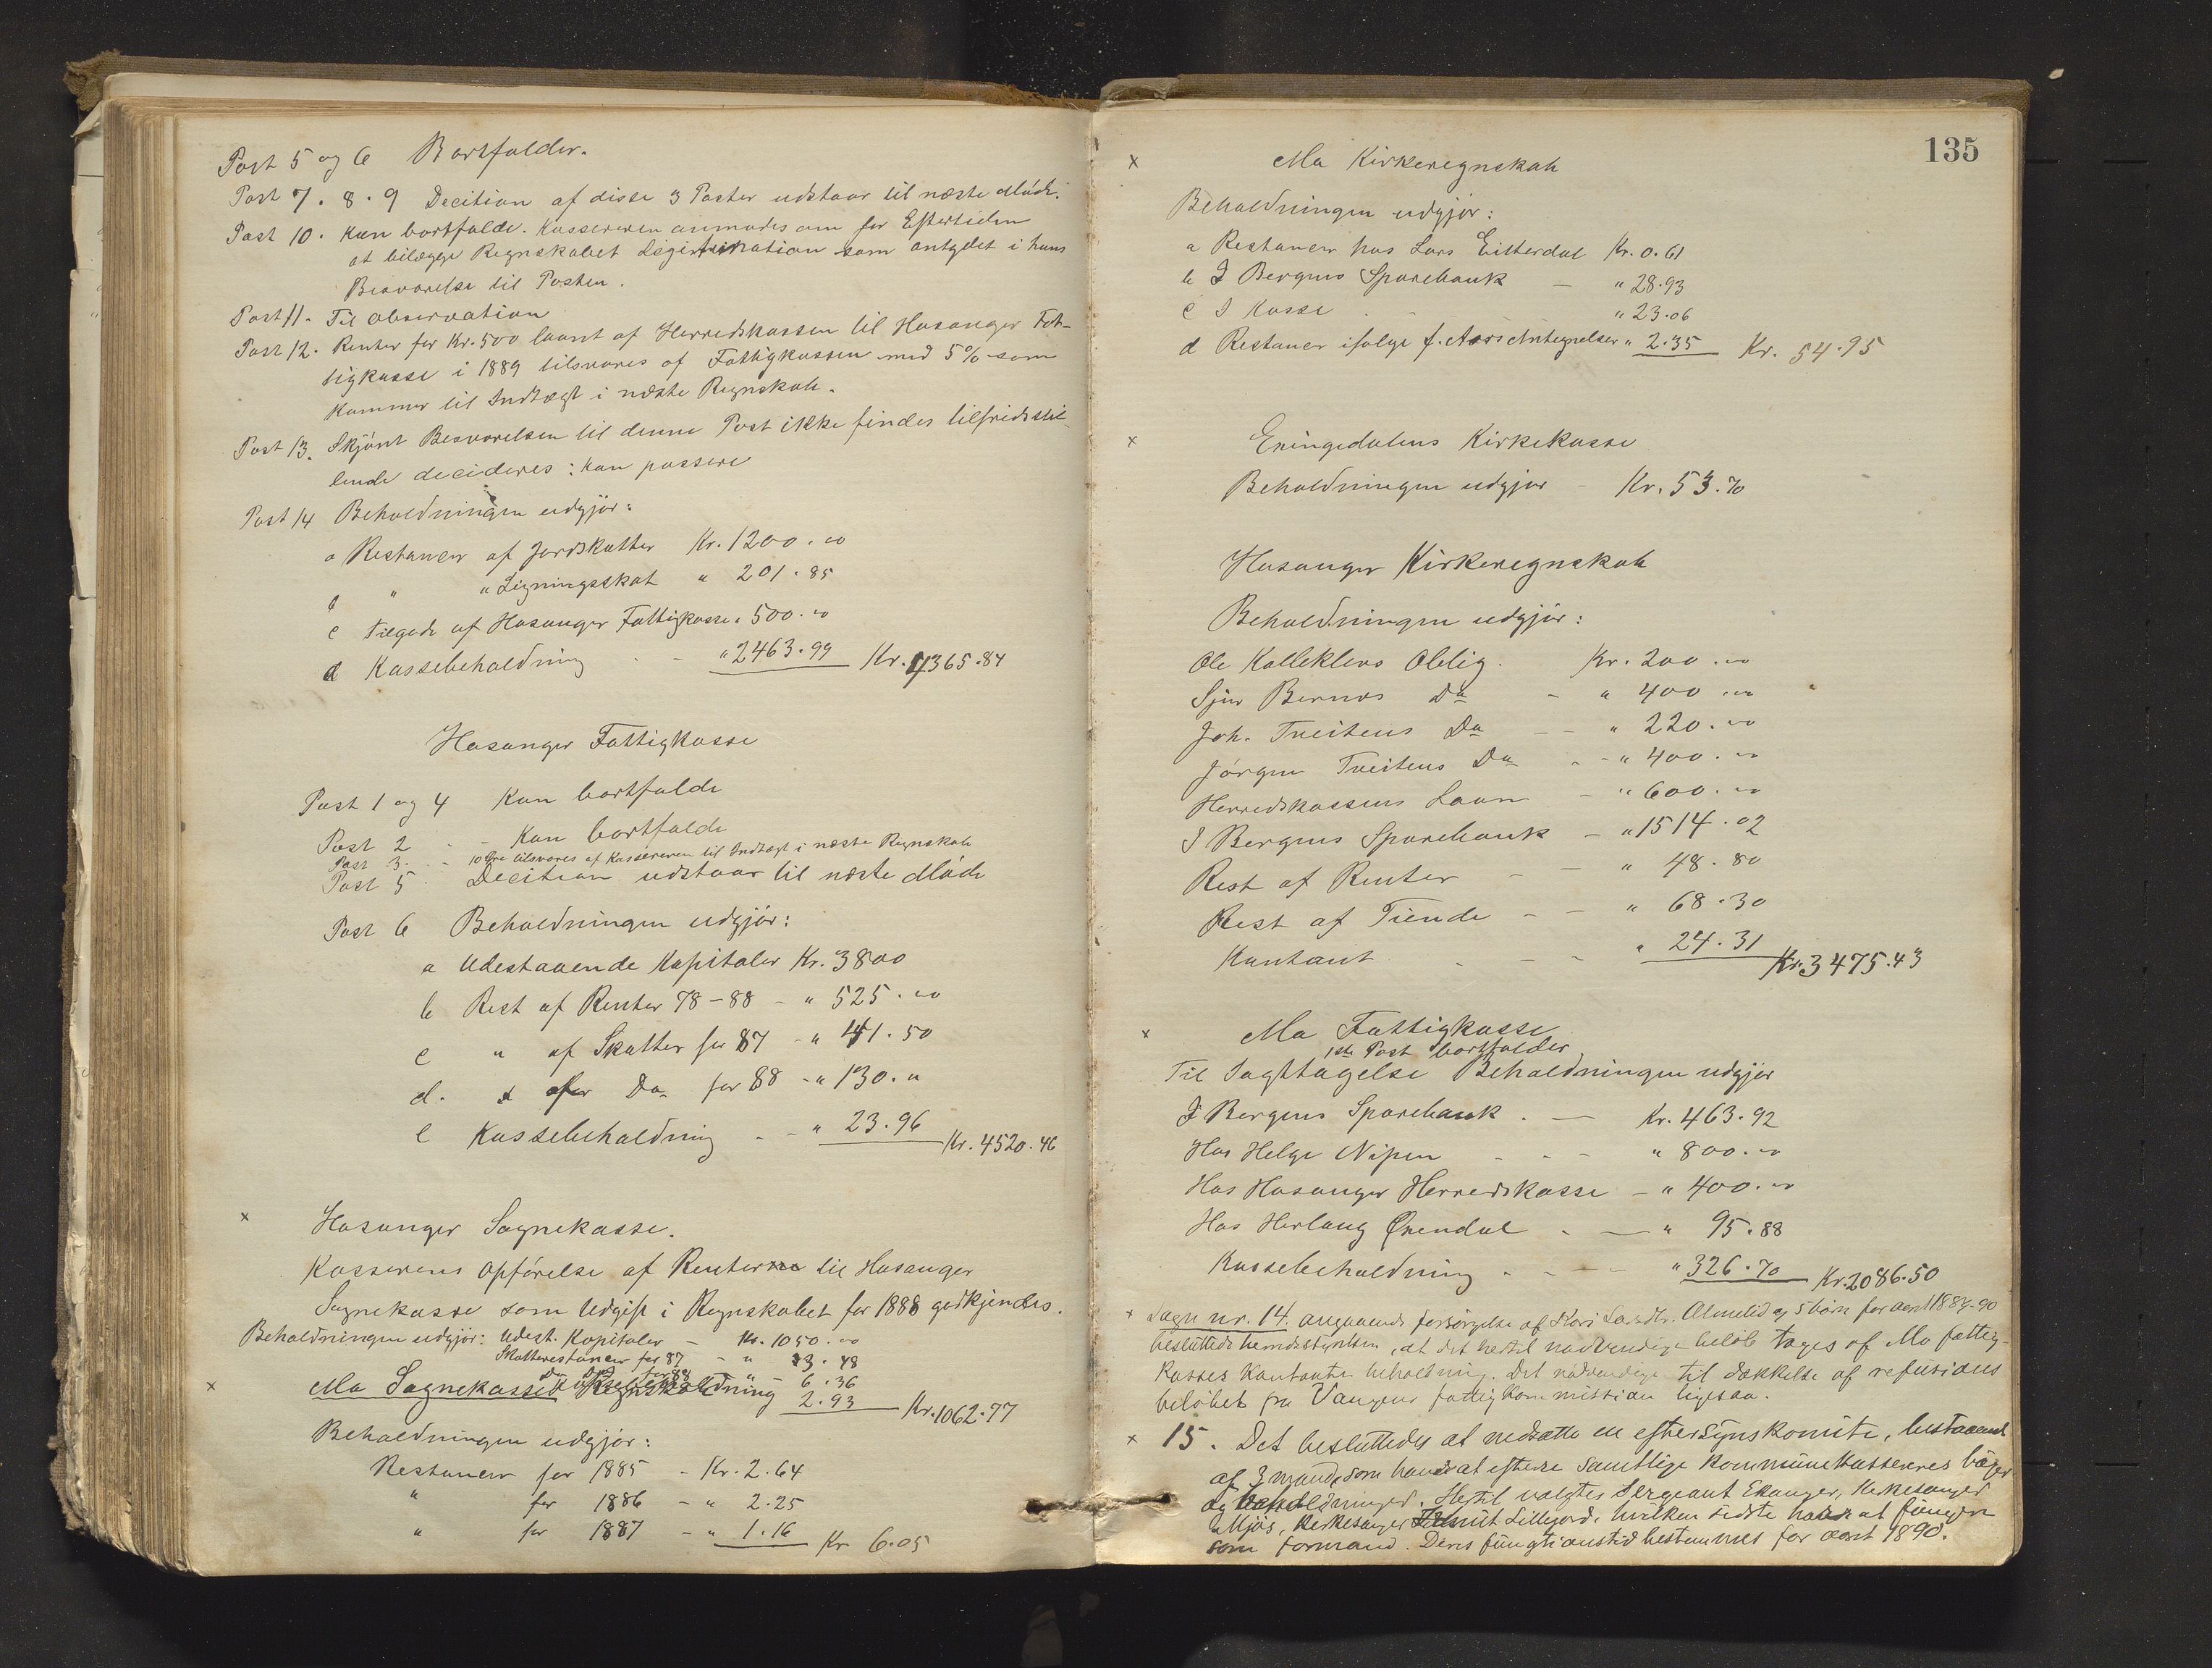 Post 5 og 6 Bortfalder.
Post 7. 8. 9 Decition af disse 3 Poster udstaar til næste Møde.
Post 10. Kan bortfalde. Kassereren anmodes om for Eftertiden
at bilægge Regnskabet Legitimation som antydet i hans
Besvarelse til Posten.
Post 11. Til Observation
Post 12. Renter for Kr. 500 laant af Herredskassen til Hosanger Fat-
tigkasse i 1889 tilsvares af Fattigkassen med 5% som
kommer til Indtægt i næste Regnskab.
Post 13. Skjønt Besvarelsen til denne Post ikke findes tilfredsstil-
lende decideres: kan passere
Post 14 Beholdningen udgjør:
a Restancer af Jordskatter Kr. 1200.00
b " " Ligningsskat " 201.85
c Tilgode af Hosanger Fattigkasse " 500.00
d Kassebeholdning " 2463.99 Kr. 4365.84
Hosanger Fattigkasse
Post 1 og 4 Kan bortfalde
Post 2 - Kan bortfalde
Post 3. - 10 Øre tilsvares af Kassereren til Indtægt i næste Regnskab
Post 5 Decition udstaar til næste Møde
Post 6 Beholdningen udgjør:
a Udestaaende Kapitaler Kr. 3800
b Rest af Renter 78-88 - " 525.00
c " af Skatter for 87 - " 41.50
d. for Do for 88 - " 130."
e Kassebeholdning - - " 23.96 Kr. 4520.46
x Hosanger Sognekasse.
Kasserens Opførelse af Renter til Hosanger
Sognekasse som Udgift i Regnskabet for 1888 godkjendes.
Beholdningen udgjør: Udest. Kapitaler - Kr. 1050.00
Skatterestancer for 87 - " 3.48
do for 88 " 6.36
x Mo Sognekasses Regnskab Kassebeholdning 2.93 Kr. 1062.77
Beholdningen udgjør:
Restancer for 1885 - Kr. 2.64
" for 1886 - " 2.25
" for 1887 - " 1.16 Kr 6.05
135
x Mo Kirkeregnskab
Beholdningen udgjør:
a Restancer hos Lars Eitterdal Kr. 0.61
b I Bergens Sparebank - " 28.93
c I Kasse - " 23.06
d Restancer ifølge f. Aars Antegnelser " 2.35 Kr. 54.95
x Eningedalens Kirkekasse
Beholdningen udgjør - Kr. 53.70
Hosanger Kirkeregnskab
Beholdningen udgjør:
Ole Kalleklevs Oblig. Kr. 200.00
Sjur Bernes Do - " 400.00
Joh. Tveitens Do - - " 220.00
Jørgen Tveitens Do - - " 400.00
Herredskassens Laan - " 600.00
I Bergens Sparebank - " 1514.02
Rest af Renter - - " 48.80
Rest af Tiende - - " 68.30
Kontant - - - " 24.31 Kr. 3475.43
x Mo Fattigkasse
1ste Post bortfalder
Til Iagttagelse Beholdningen udgjør
I Bergens Sparebank. - Kr. 463.92
Hos Helge Nipen - - - " 800.00
Hos Hosanger Herredskasse - " 400.00
Hos Herlaug Øxendal - - " 95.88
Kassebeholdning - - - " 326.70 Kr. 2086.50
x Sagn nr. 14. angaaende forsørgelse af Kari Larsdtr. Almelid og 5 børn for aaret 1889-90
besluttede herredsstyrelsen, at det hertil nødvendige beløb tages af Mo fattig-
kasses kontante beholdning. Det nødvendige til dækkelse af refusions
beløbet fra Vangens fattigkommission ligesaa.
x 15. Det besluttedes at nedsætte en eftersynskomite, bestaaende
af 3 mand, som har at efterse samtlige kommunekasserers bøger
og beholdninger. Hertil valgtes Sergeant Ekanger, Kirkesanger
Mjøs, Kirkesanger Lillejord, hvilken sidste har at fungere
som formand. Deres fungtionstid bestemmes for aaret 1890.